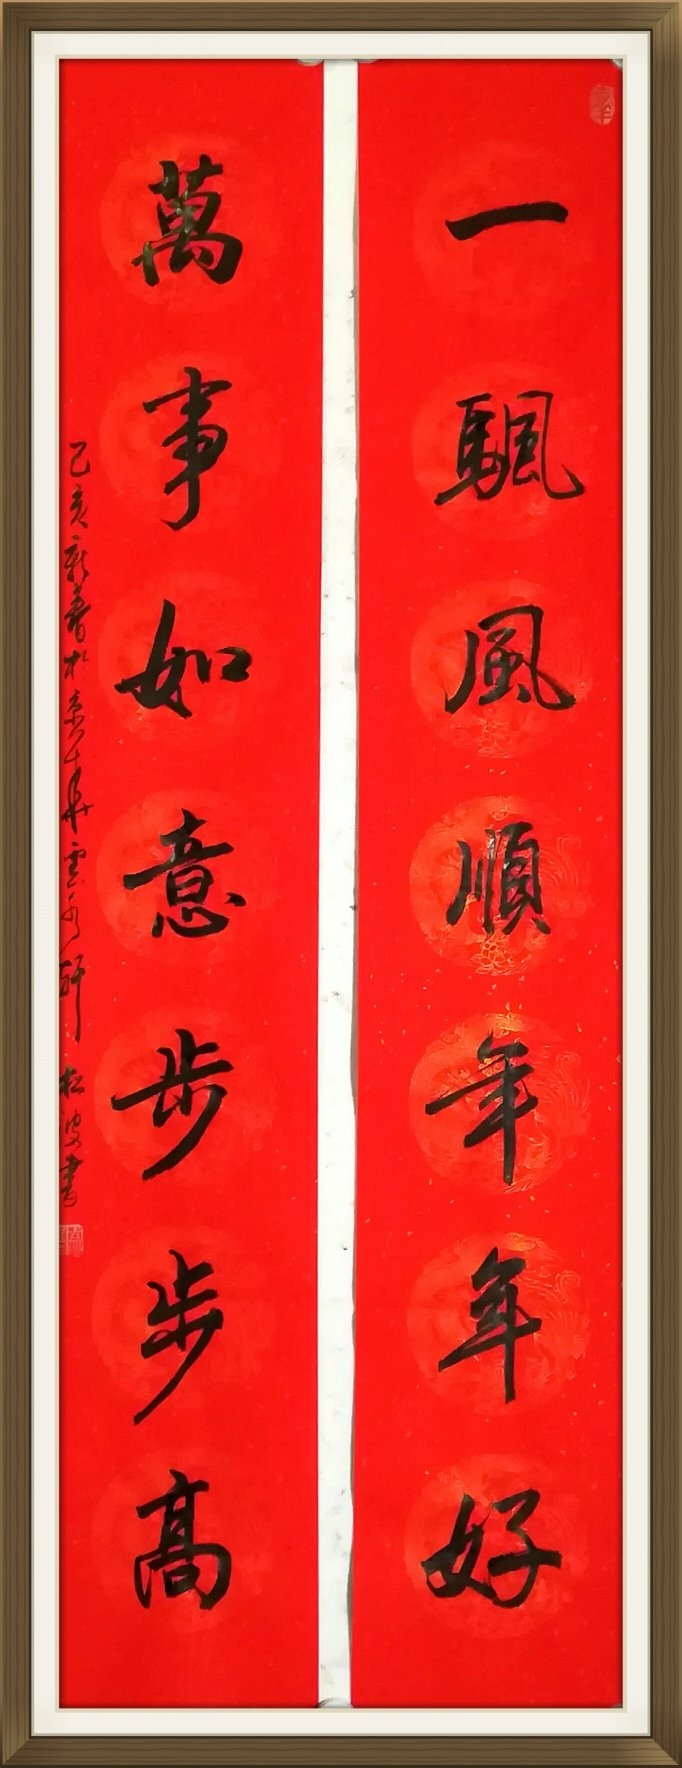 一颿風順年年好
萬事如意步步高
己亥新春於京華雲水軒 松波書